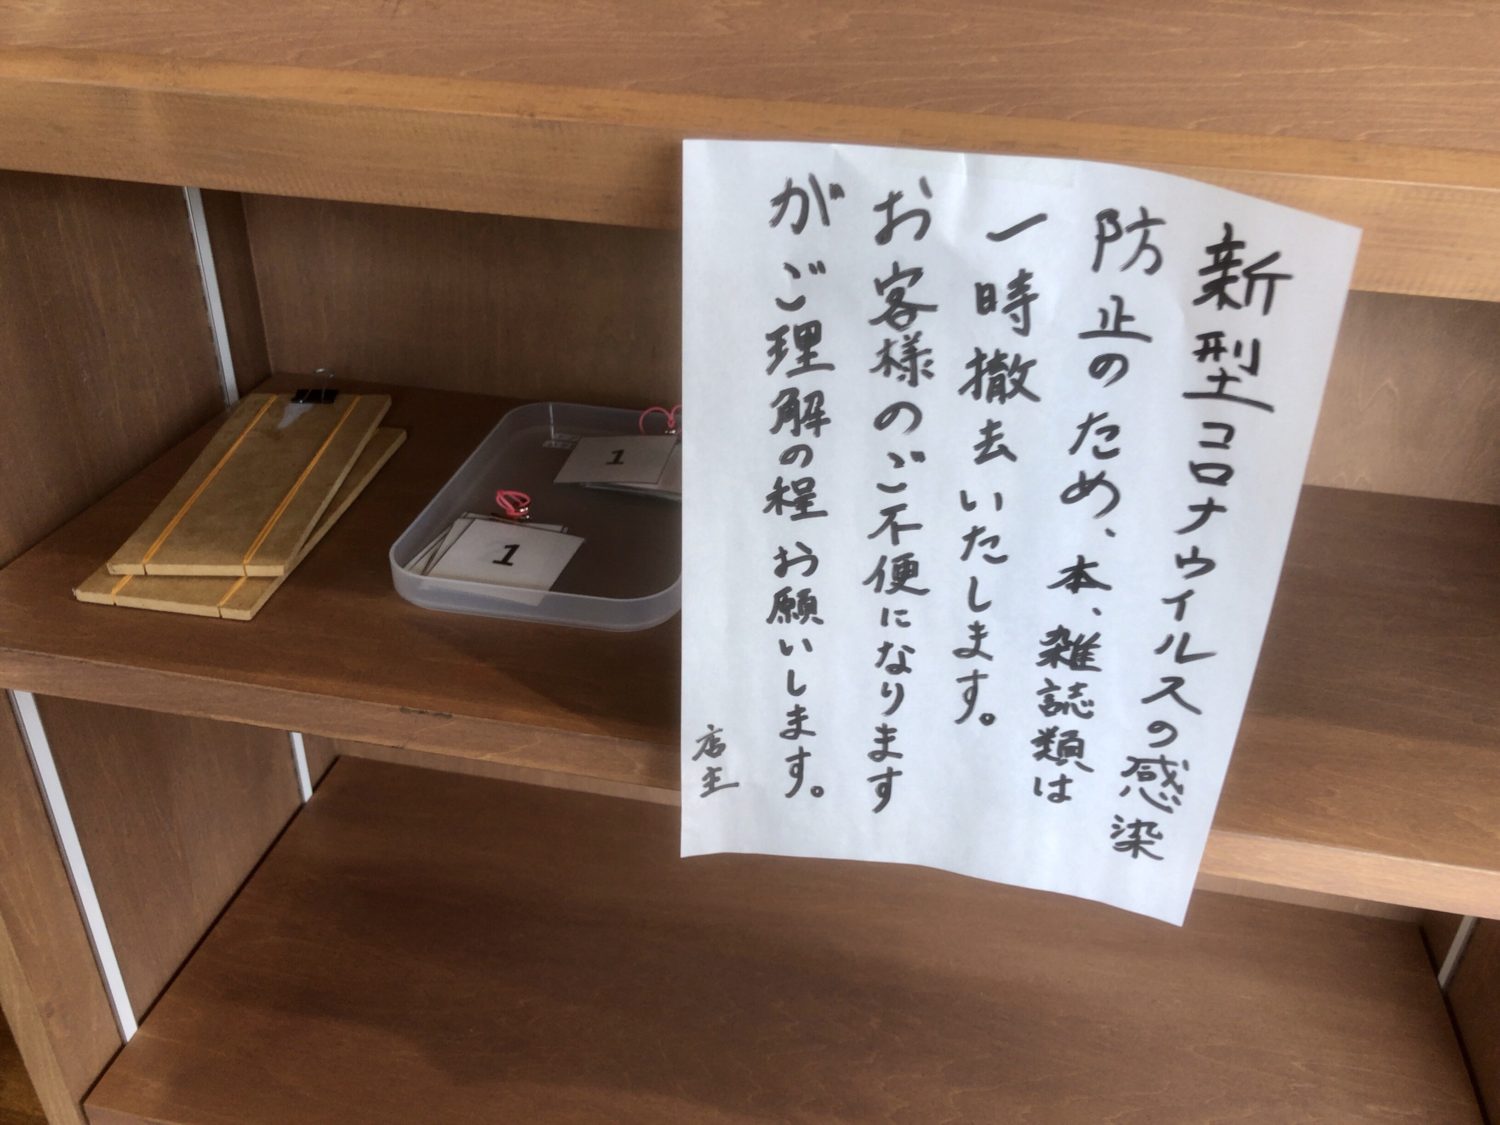 新型コロナウィルスの感染
防止のため、本、雑誌類は
一時撤去いたします。
お客様のご不便になります
がご理解の程お願いします。
店主
1
1